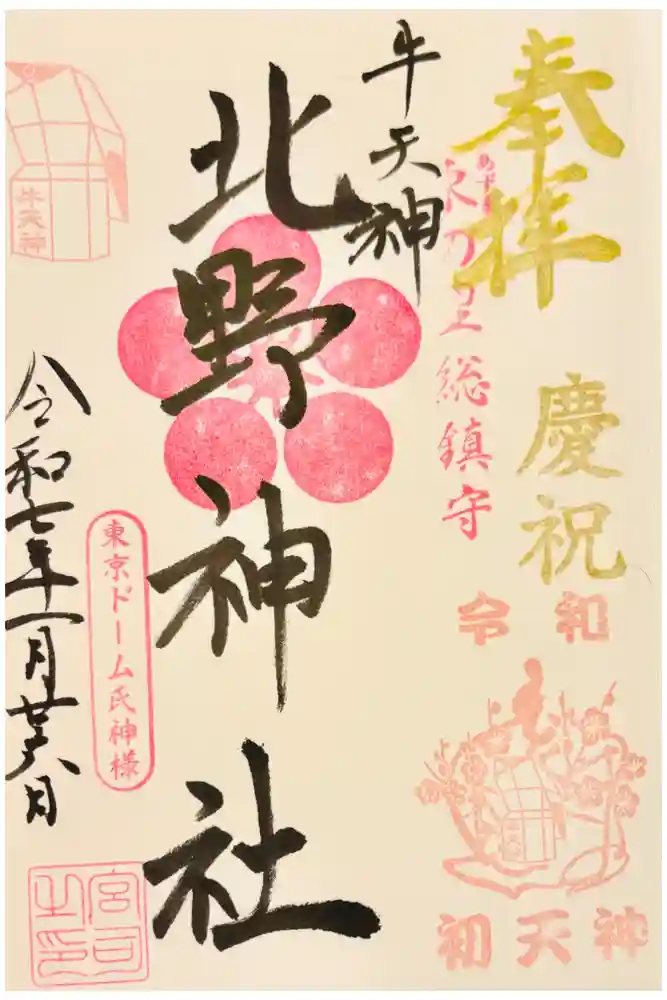 奉拝
慶祝
令和
初天神
あずま
東の宮総鎮守
牛天神
北野神社
東京ドーム氏神様
牛天神
令和七年一月廿六日
宮司之印